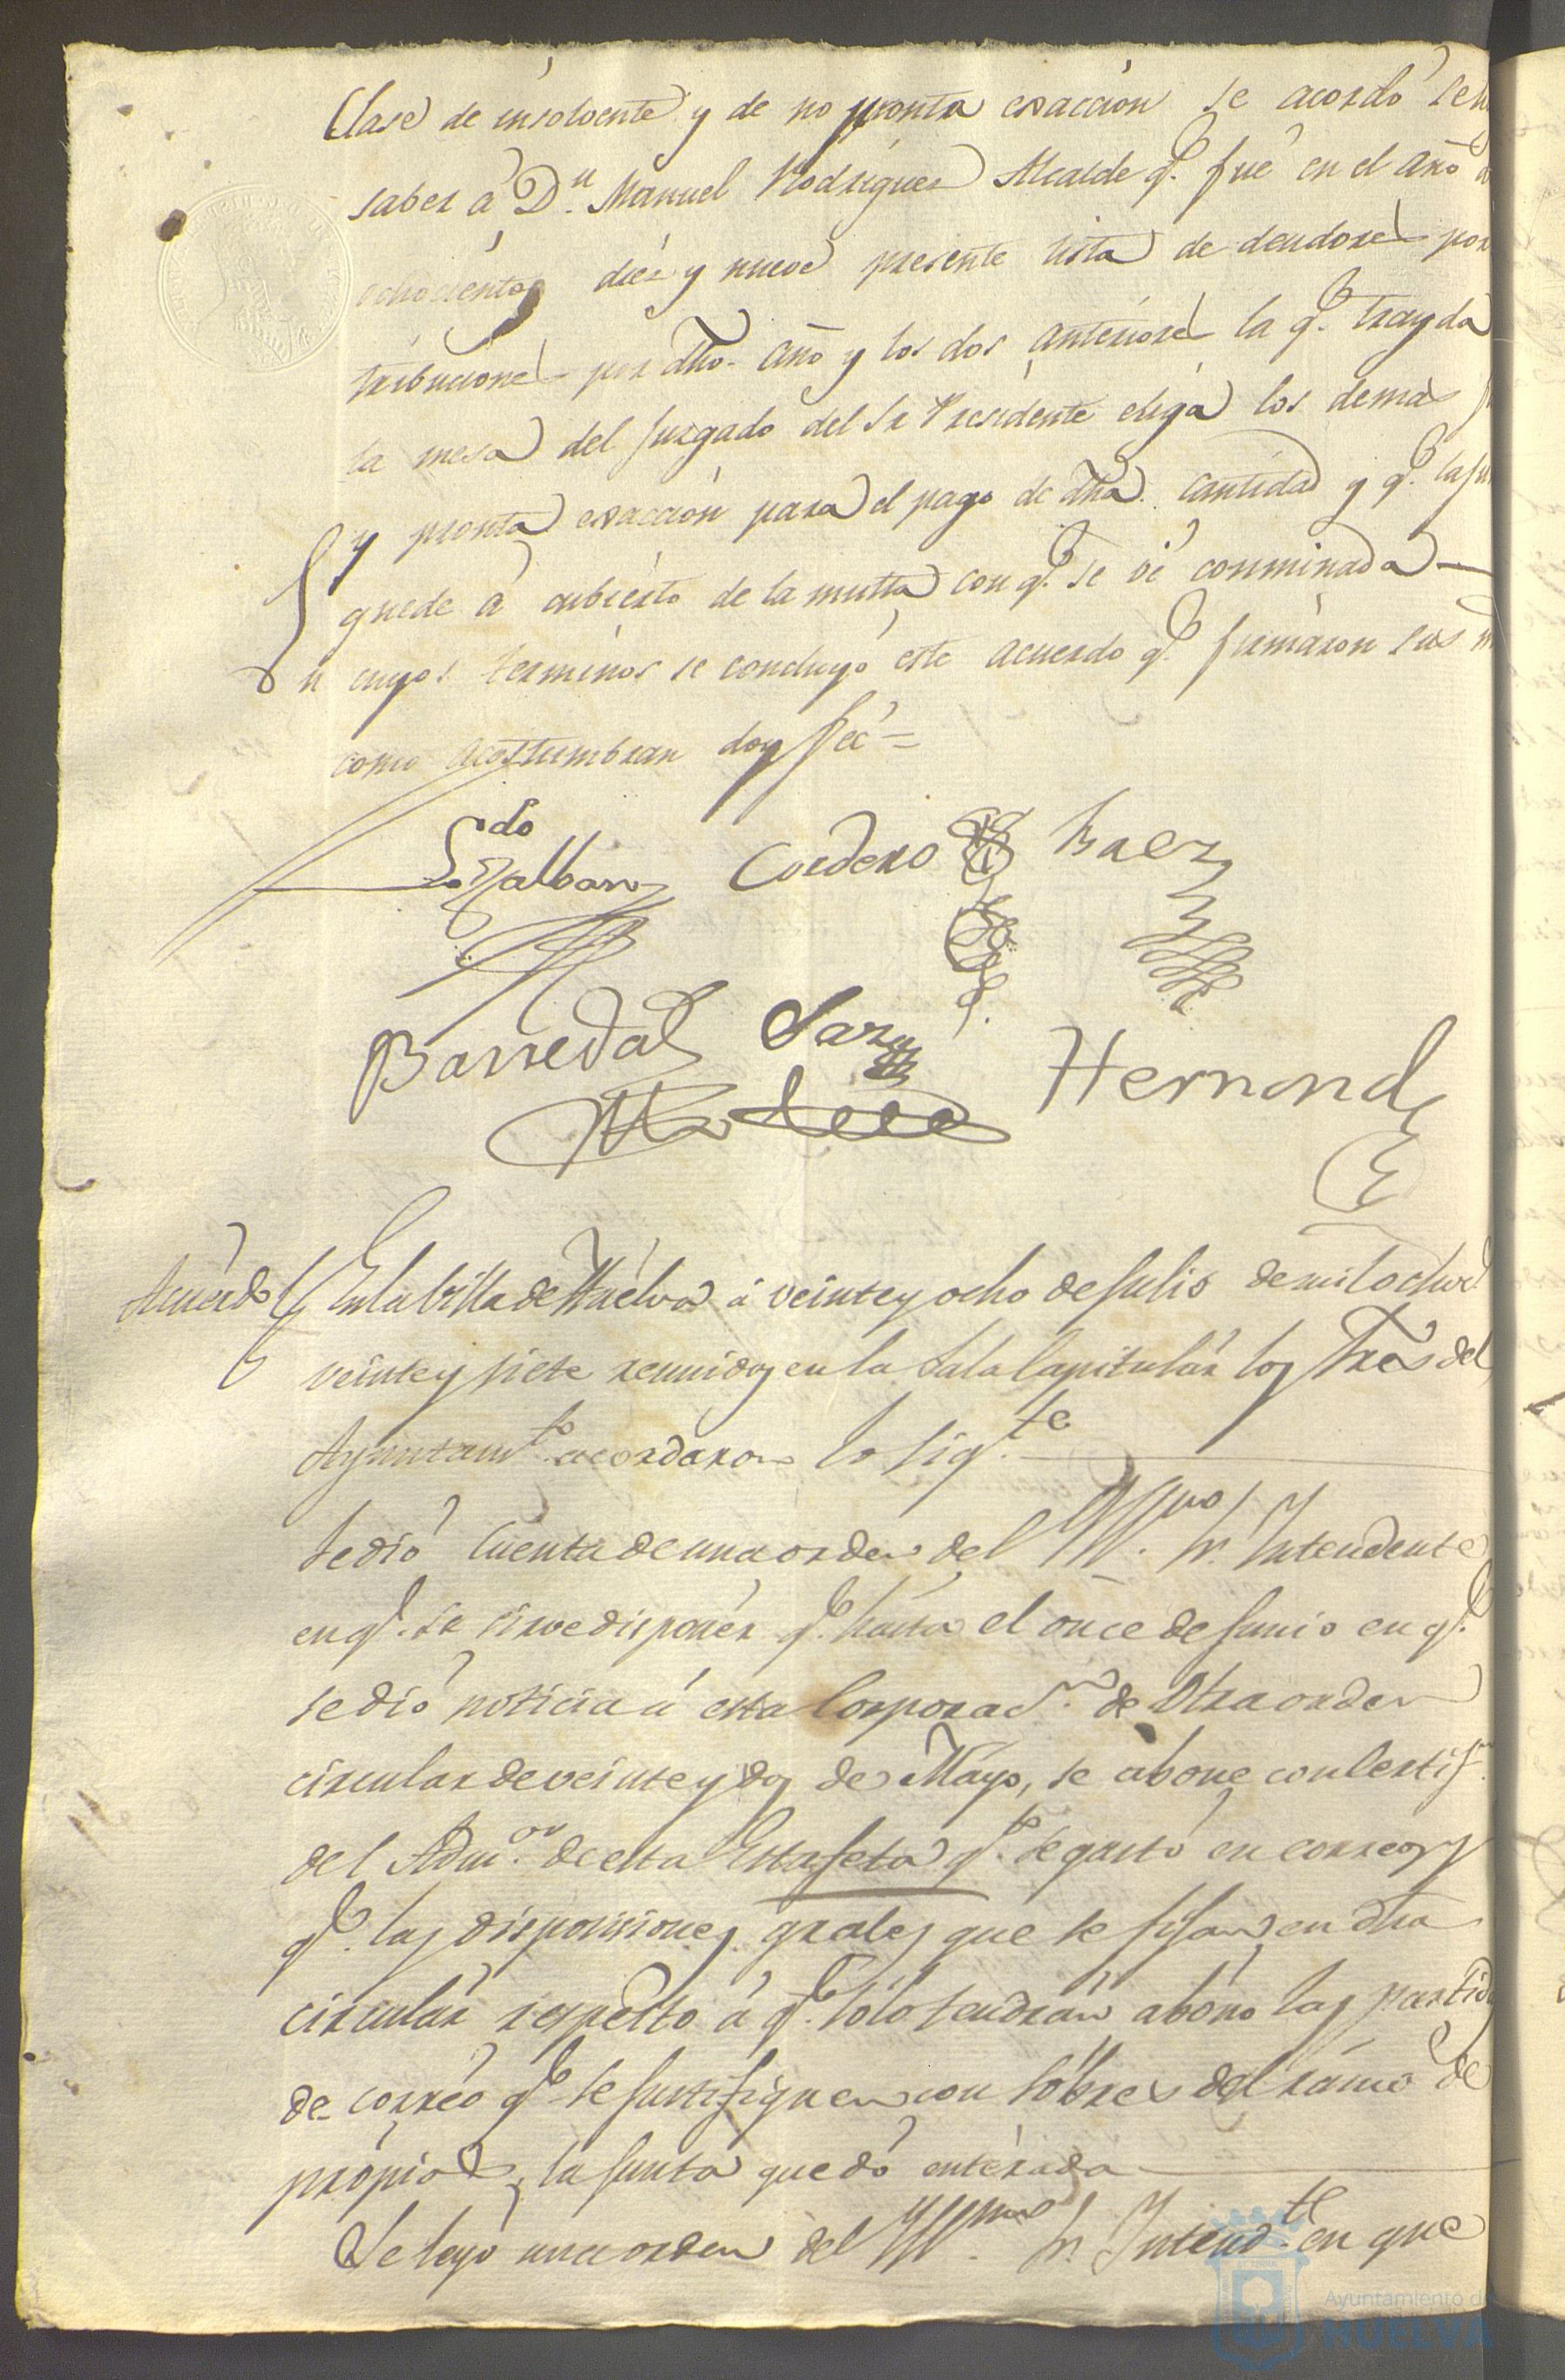 Clase de insolvente y de no pronta exaccion se acordó
saber á D.n Manuel Rodriguez Alcalde q.e fué en el año
ochocientos diez y nueve presente lista de deudores por
tribuciones por dho. año y los dos anteriores la q.e trayda
la mesa del Juzgado del Sr Presidente elija los demas
y pronta exaccion para el pago de dha. cantidad y q.e
quede á cubierto de la multa con q.e se vé conminada
En cuyos terminos se concluyó este acuerdo q.e firmaron sus
como acostumbran doy feé =
L.do Galban Cordero Baez
Barredal Saez Hernand
Acuerdo En la Villa de Huelva á veinte y ocho de Julio de mil ochoc
veinte y siete reunidos en la Sala Capitulár los Sres del
Ayuntam.to acordaron lo sig.te
Se dió cuenta de una orden del Yll.mo Sr. Yntendente
en q.e se sirve disponer q.e hasta el once de Junio en q.e
se dió noticia á esta Corporac.n de Otra orden
circular de veinte y dos de Mayo, se abone con certif.n
del Adm.or de esta Estafeta q.e se gastó en correos y
q.e las disposiciones grales que se fijan en dha
circulár respecto á q.e sólo tendrán abono las partid
de corréo q.e se justifiquen con sobres del ramo de
própios, la Junta quedó enterada
Se leyó una orden del Yll.mo Sr. Yntend.te en que
Ayuntamiento de
HUELVA